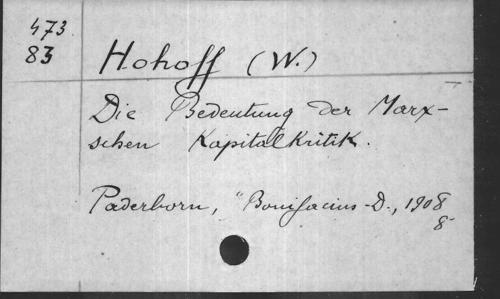 473
83
Hohoff (W.)
Die Bedeutung der Marx-
schen Kapitalkritik.
Paderborn, "Bonifacius-D., 1908
8